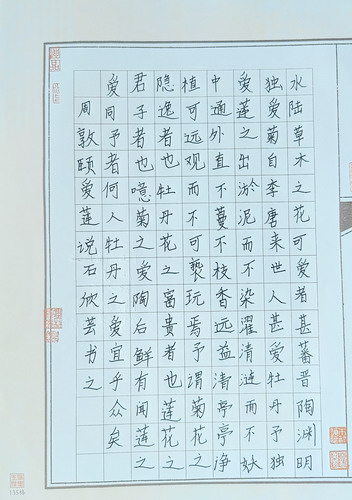 水陆草木之花可爱者甚蕃晋陶渊明
独爱菊自李唐来世人甚爱牡丹予独
爱莲之出淤泥而不染濯清涟而不妖
中通外直不蔓不枝香远益清亭亭净
植可远观而不可亵玩焉予谓菊花之
隐逸者也牡丹花之富贵者也莲花之
君子者也噫菊之爱陶后鲜有闻莲之
爱同予者何人牡丹之爱宜乎众矣
周敦颐爱莲说石欣芸书之